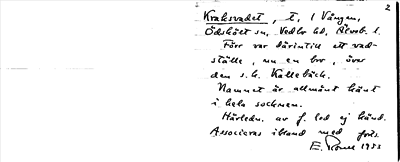 2
Kraksvadet, t, i Vången,
Ödskölt sn, Vedbo hd, Älvsb. l.
Förr var därintill ett vad-
ställe, nu en bro, över
den s.k. Kallebäck.
Namnet är allmänt känt
i hela socknen.
Härledn. av f. led ej känd.
Associeras ibland med
E. 1933